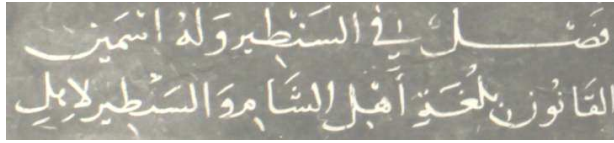 فَصْل في السَنْطِير وَلَهُ اسْمَين
القَانُون بلُغَةِ أَهْلِ الشَام وَالسَنْطِير لاهل